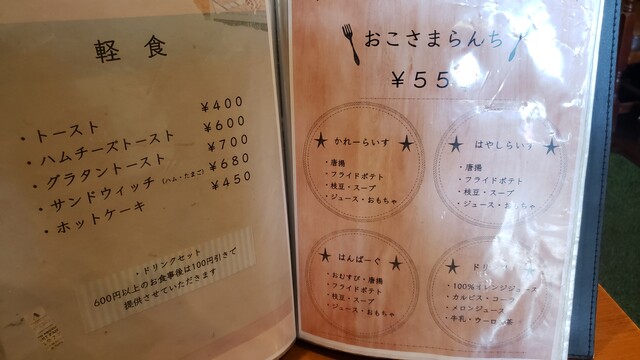 軽 食
・トースト ¥400
・ハムチーズトースト ¥600
・グラタントースト ¥700
・サンドウィッチ (ハム・たまご) ¥680
・ホットケーキ ¥450
・ドリンクセット
600円以上のお食事後は100円引きで
提供させていただきます
おこさまらんち
¥55
★ かれーらいす ★
・唐揚
・フライドポテト
・枝豆・スープ
・ジュース・おもちゃ
★ はやしらいす ★
・唐揚
・フライドポテト
・枝豆・スープ
・ジュース・おもちゃ
★ はんばーぐ ★
・おむすび・唐揚
・フライドポテト
・枝豆・スープ
・ジュース・おもちゃ
★ ドリ
・100%オレンジジュース
・カルピス・コーラ
・メロンジュース
・牛乳・ウーロン茶